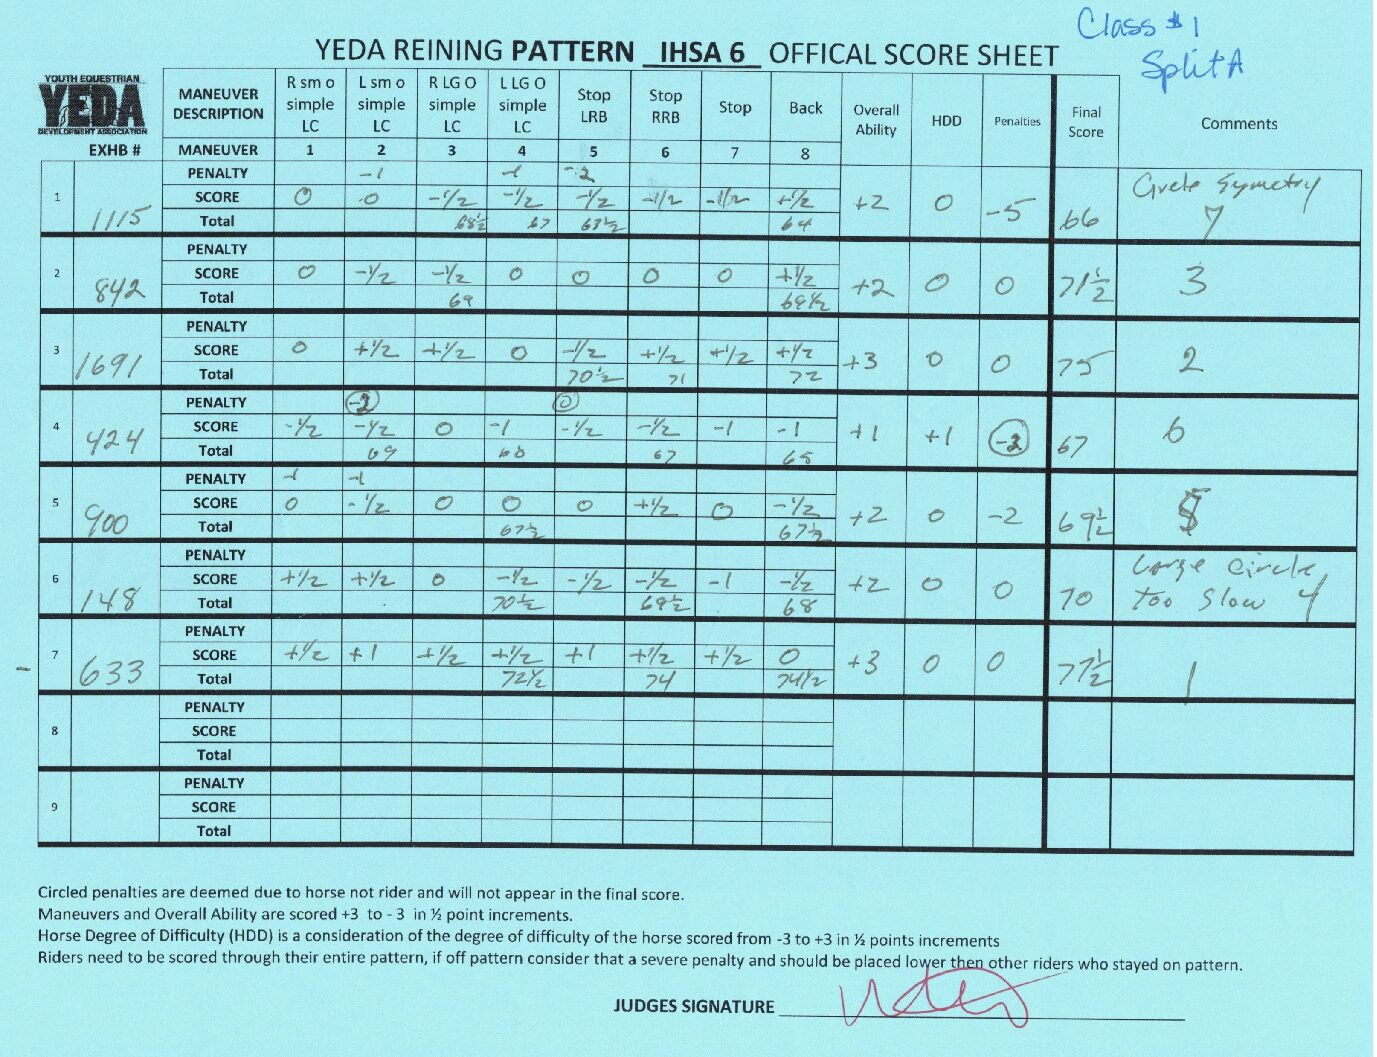 Class #1
Split A
YEDA REINING PATTERN IHSA 6 OFFICAL SCORE SHEET
YOUTH EQUESTRIAN
YEDA
DEVELOPMENT ASSOCIATION
MANEUVER DESCRIPTION R sm o simple LC L sm o simple LC R LG O simple LC L LG O simple LC Stop LRB Stop RRB Stop Back Overall Ability HDD Penalties Final Score Comments
EXHB # MANEUVER 1 2 3 4 5 6 7 8
1 1115 +2 0 -5 66 Circle Symetry 7
PENALTY -1 -1 -2
SCORE 0 0 -1/2 -1/2 -1/2 -1/2 -1/2 +1/2
Total 68½ 67 63½ 64
2 842 +2 0 0 71½ 3
PENALTY
SCORE 0 -1/2 -1/2 0 0 0 0 +1/2
Total 69 69½
3 1691 +3 0 0 75 2
PENALTY
SCORE 0 +1/2 +1/2 0 -1/2 +1/2 +1/2 +1/2
Total 70½ 71 72
4 424 +1 +1 67 6
PENALTY 0
SCORE -1/2 -1/2 0 -1 -1/2 -1/2 -1 -1
Total 69 68 67 65
5 900 +2 0 -2 69½ 5
PENALTY -1 -1
SCORE 0 -1/2 0 0 0 +1/2 0 -1/2
Total 67½ 67½
6 148 +2 0 0 70 Large Circle too slow 4
PENALTY
SCORE +1/2 +1/2 0 -1/2 -1/2 -1/2 -1 -1/2
Total 70½ 69½ 68
7 - 633 +3 0 0 77½ 1
PENALTY
SCORE +1/2 +1 +1/2 +1/2 +1 +1/2 +1/2 0
Total 72½ 74 74½
8
PENALTY
SCORE
Total
9
PENALTY
SCORE
Total
Circled penalties are deemed due to horse not rider and will not appear in the final score.
Maneuvers and Overall Ability are scored +3 to - 3 in ½ point increments.
Horse Degree of Difficulty (HDD) is a consideration of the degree of difficulty of the horse scored from -3 to +3 in ½ points increments
Riders need to be scored through their entire pattern, if off pattern consider that a severe penalty and should be placed lower then other riders who stayed on pattern.
JUDGES SIGNATURE